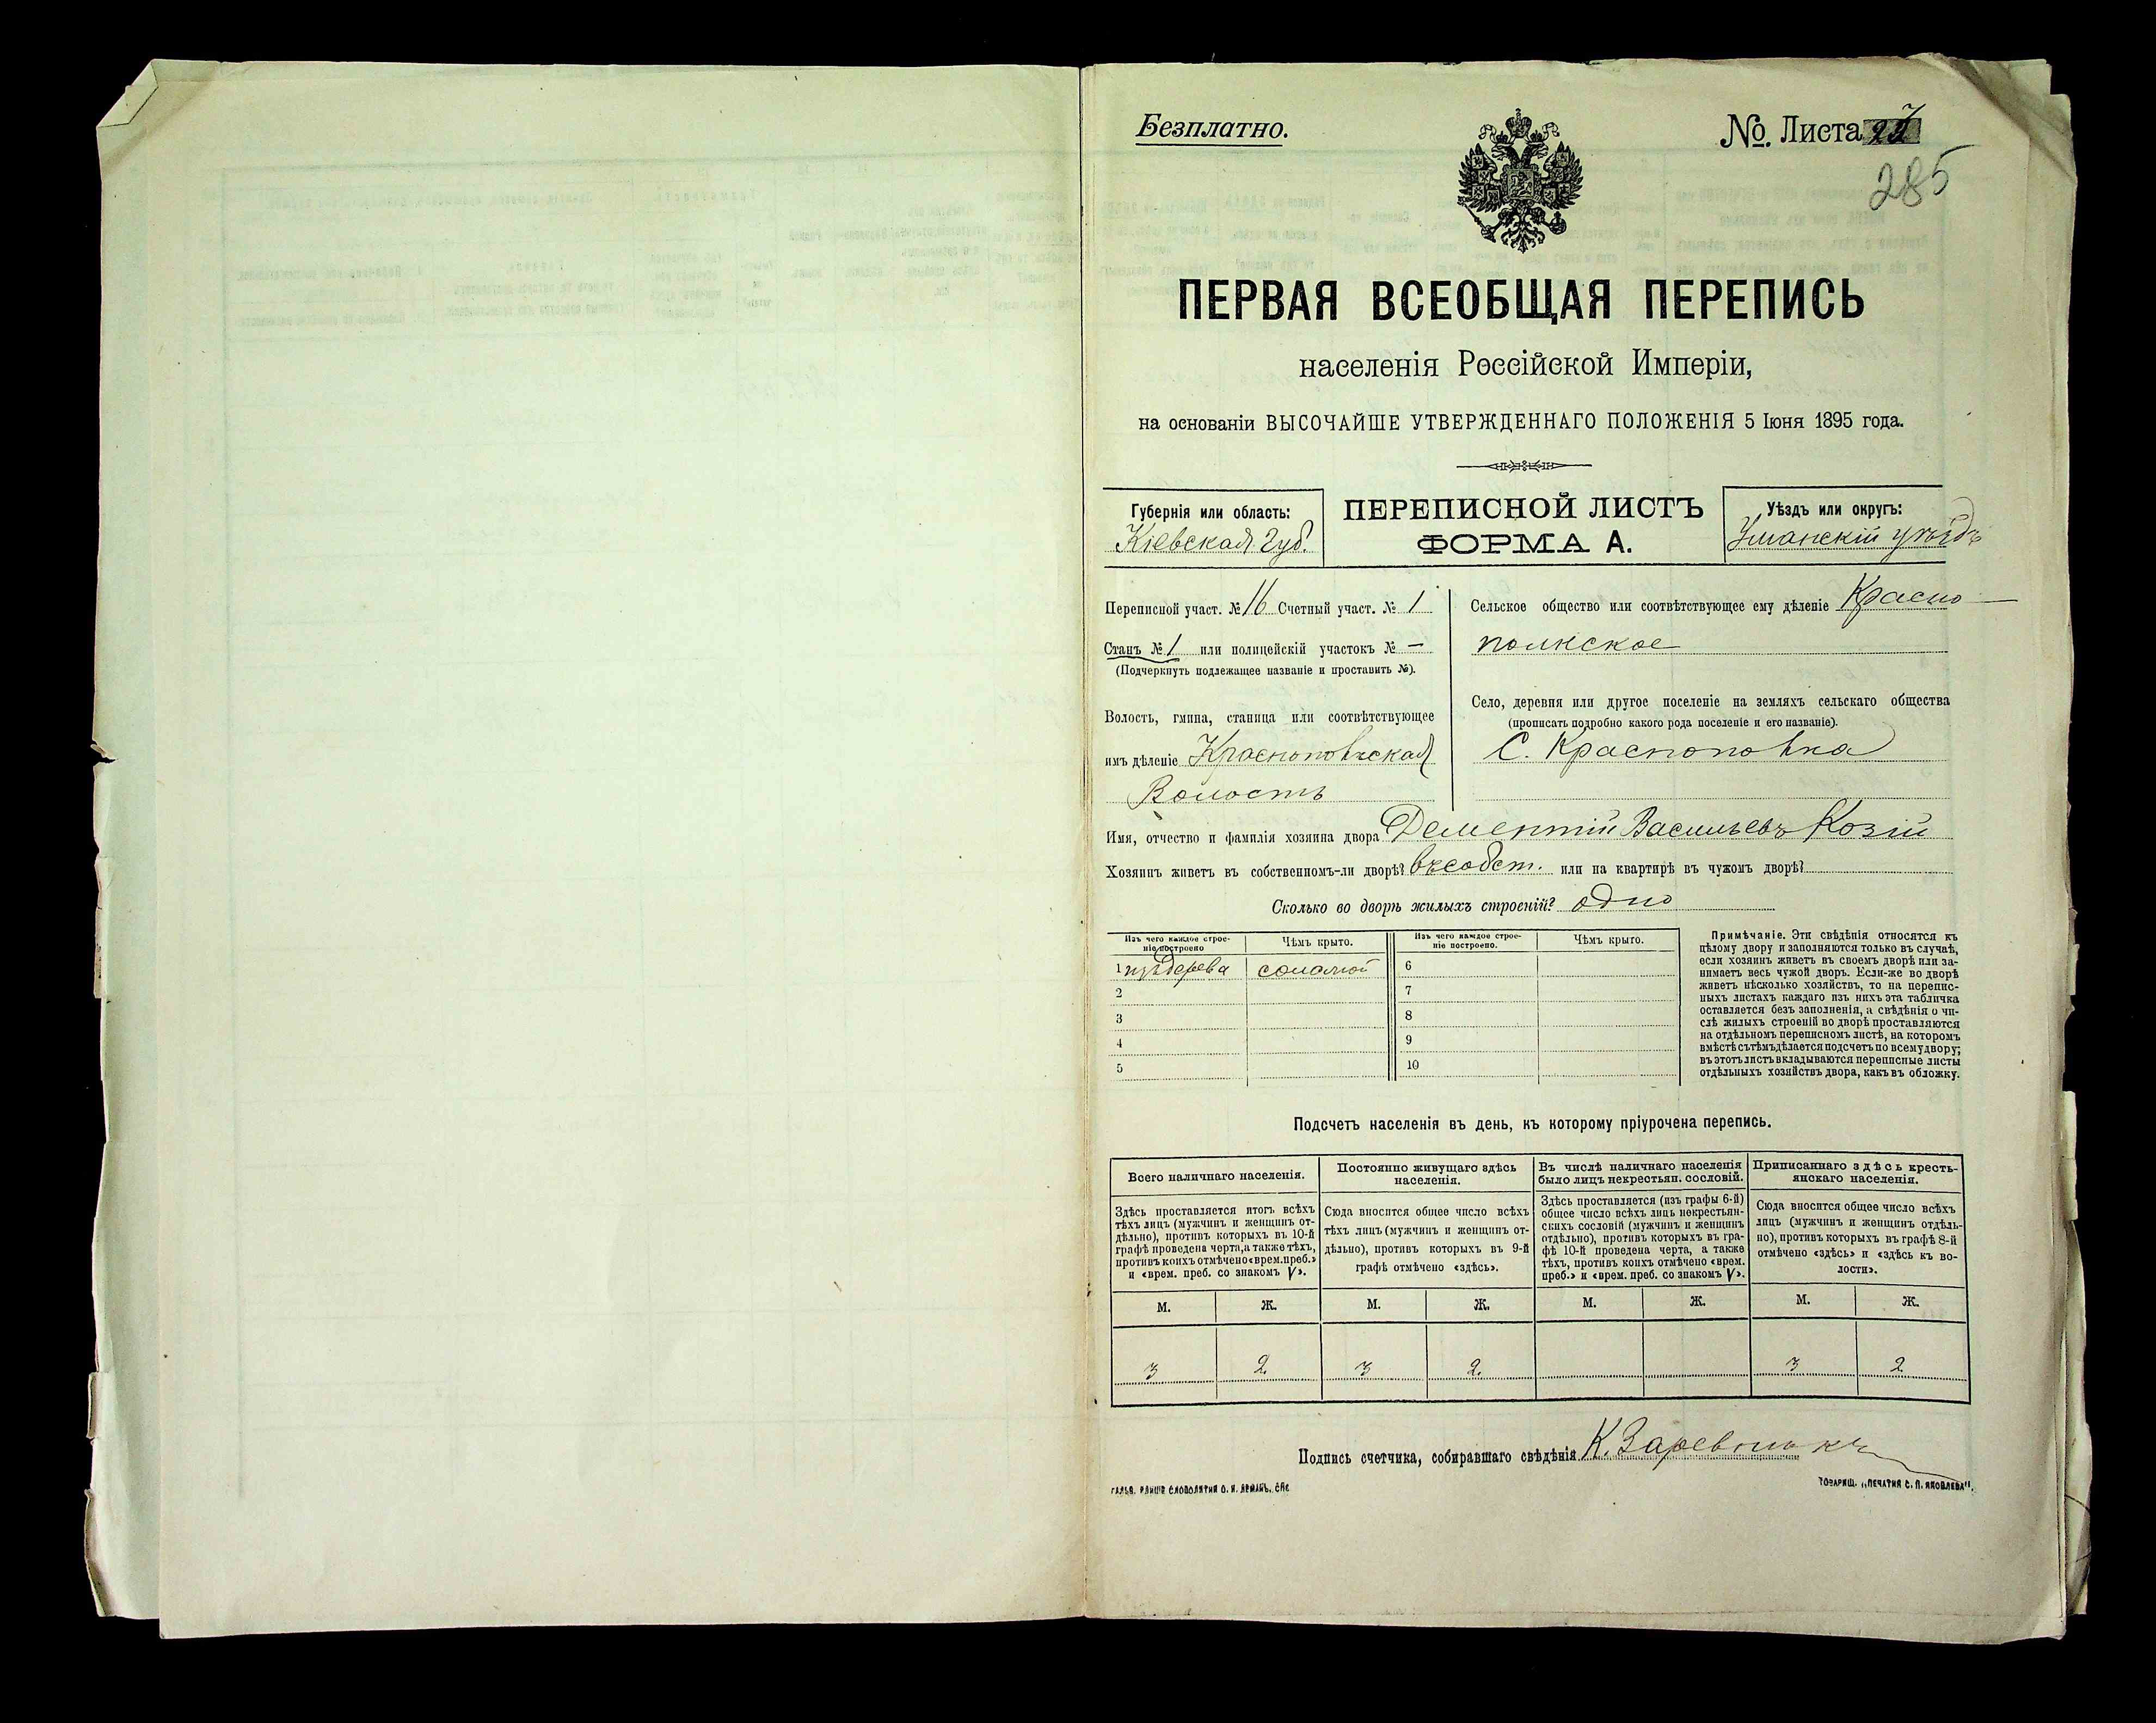 Безплатно.
№. Листа
285
ПЕРВАЯ ВСЕОБЩАЯ ПЕРЕПИСЬ
населенія Россійской Имперіи,
на основаніи ВЫСОЧАЙШЕ УТВЕРЖДЕННАГО ПОЛОЖЕНІЯ 5 Іюня 1895 года.
Губернія или область:
Кіевская Губ.
ПЕРЕПИСНОЙ ЛИСТЪ
ФОРМА А.
Уѣздъ или округъ:
Уманскій уѣздъ
Переписной участ. № 16 Счетный участ. № 1
Станъ № 1 или полицейскій участокъ № —
(Подчеркнуть подлежащее названіе и проставить №).
Волость, гмина, станица или соотвѣтствующее
имъ дѣленіе Краснопольская
Волость
Сельское общество или соотвѣтствующее ему дѣленіе Красно
польское
Село, деревня или другое поселеніе на земляхъ сельскаго общества
(прописать подробно какого рода поселеніе и его названіе).
С. Краснополка
Имя, отчество и фамилія хозяина двора Дементій Васильевъ Козій
Хозяинъ живетъ въ собственномъ-ли дворѣ? въ собст. или на квартирѣ въ чужомъ дворѣ?
Сколько во дворѣ жилыхъ строеній? одно
Изъ чего каждое строе-
ніе построено
Чѣмъ крыто.
Изъ чего каждое строе-
ніе построено.
Чѣмъ крыто.
1 изъ дерева соломой
2
3
4
5
6
7
8
9
10
Примѣчаніе. Эти свѣдѣнія относятся къ
цѣлому двору и заполняются только въ случаѣ,
если хозяинъ живетъ въ своемъ дворѣ или за-
нимаетъ весь чужой дворъ. Если-же во дворѣ
живетъ нѣсколько хозяйствъ, то на перепис-
ныхъ листахъ каждаго изъ нихъ эта табличка
оставляется безъ заполненія, а свѣдѣнія о чи-
слѣ жилыхъ строеній во дворѣ проставляются
на отдѣльномъ переписномъ листѣ, на которомъ
вмѣстѣ съ тѣмъ дѣлается подсчетъ по всему двору;
въ этотъ листъ вкладываются переписные листы
отдѣльныхъ хозяйствъ двора, какъ въ обложку.
Подсчетъ населенія въ день, къ которому пріурочена перепись.
Всего наличнаго населенія.
Здѣсь проставляется итогъ всѣхъ
тѣхъ лицъ (мужчинъ и женщинъ от-
дѣльно), противъ которыхъ въ 10-й
графѣ проведена черта, а также тѣхъ,
противъ коихъ отмѣчено «врем. преб.»
и «врем. преб. со знакомъ V».
Постоянно живущаго здѣсь
населенія.
Сюда вносится общее число всѣхъ
тѣхъ лицъ (мужчинъ и женщинъ от-
дѣльно), противъ которыхъ въ 9-й
графѣ отмѣчено «здѣсь».
Въ числѣ наличнаго населенія
было лицъ некрестьян. сословій.
Здѣсь проставляется (изъ графы 6-й)
общее число всѣхъ лицъ некрестьян-
скихъ сословій (мужчинъ и женщинъ
отдѣльно), противъ которыхъ въ гра-
фѣ 10-й проведена черта, а также
тѣхъ, противъ коихъ отмѣчено «врем.
преб.» и «врем. преб. со знакомъ V».
Приписаннаго здѣсь кресть-
янскаго населенія.
Сюда вносится общее число всѣхъ
лицъ (мужчинъ и женщинъ отдѣль-
но), противъ которыхъ въ графѣ 8-й
отмѣчено «здѣсь» и «здѣсь къ во-
лости».
М. Ж. М. Ж. М. Ж. М. Ж.
3 2 3 2. 3 2
Подпись счетчика, собиравшаго свѣдѣнія К.
ТОВАРИЩ. „ПЕЧАТНЯ С. П. ЯКОВЛЕВА".